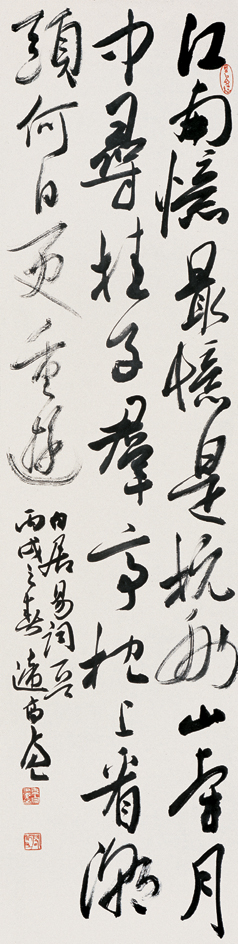 江南憶最憶是杭州山寺月
中尋桂子羣亭枕上看潮
頭何日更重遊
白居易詞
丙戌之春